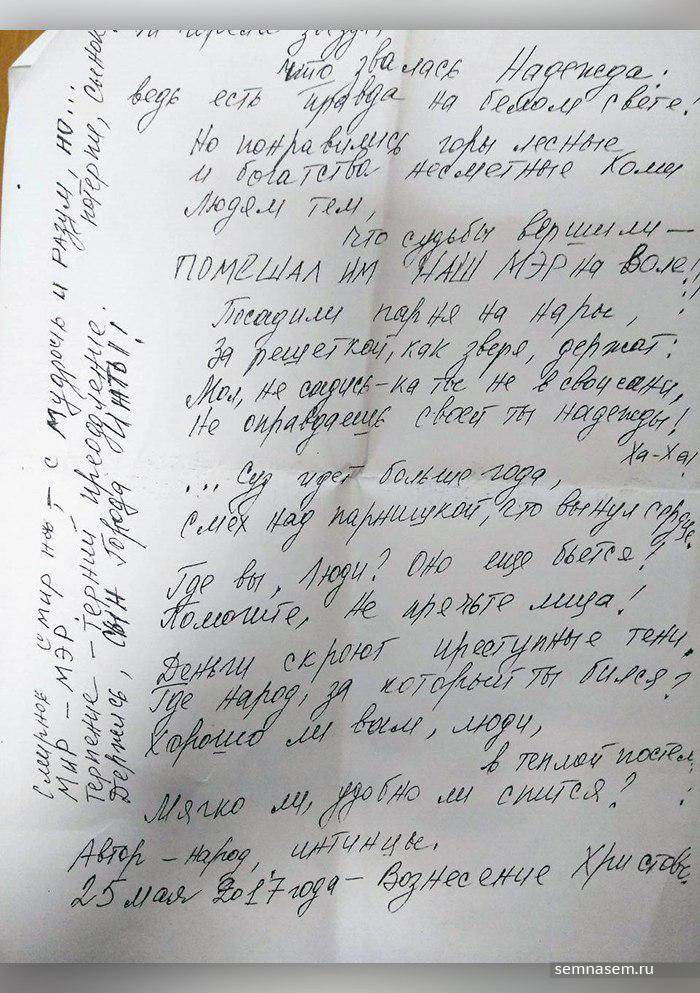 что звалась Надежда:
ведь есть правда на белом свете!
Но понравились горы лесные
и богатства несметные Коми
Людям тем,
что судьбы вершили —
ПОМЕШАЛ ИМ НАШ МЭР на воле!
Посадили парня на нары,
За решеткой, как зверя, держат:
Мол, не садись-ка ты не в свои сани,
Не оправдаешь своей ты надежды!
Ха-Ха!
... Суд идет больше года,
Смех над парнишкой, что вынул сердце.
Где вы, люди? Оно ещё бьется!
Помогите, не прячьте лица!
Деньги скроют преступные тени.
Где народ, за который ты бился?
Хорошо ли вам, люди,
в теплой постели,
Мягко ли, удобно ли спится?
Автор – народ, интинцы.
25 мая 2017 года – Вознесение Христово.
Смирнов смирно, – с мудрость и разум, но...
потерпи, сынок.
Мир – МЭР
Терпение – терний преодоление.
Держись, сын Города ИНТЫ!
semnasem.ru